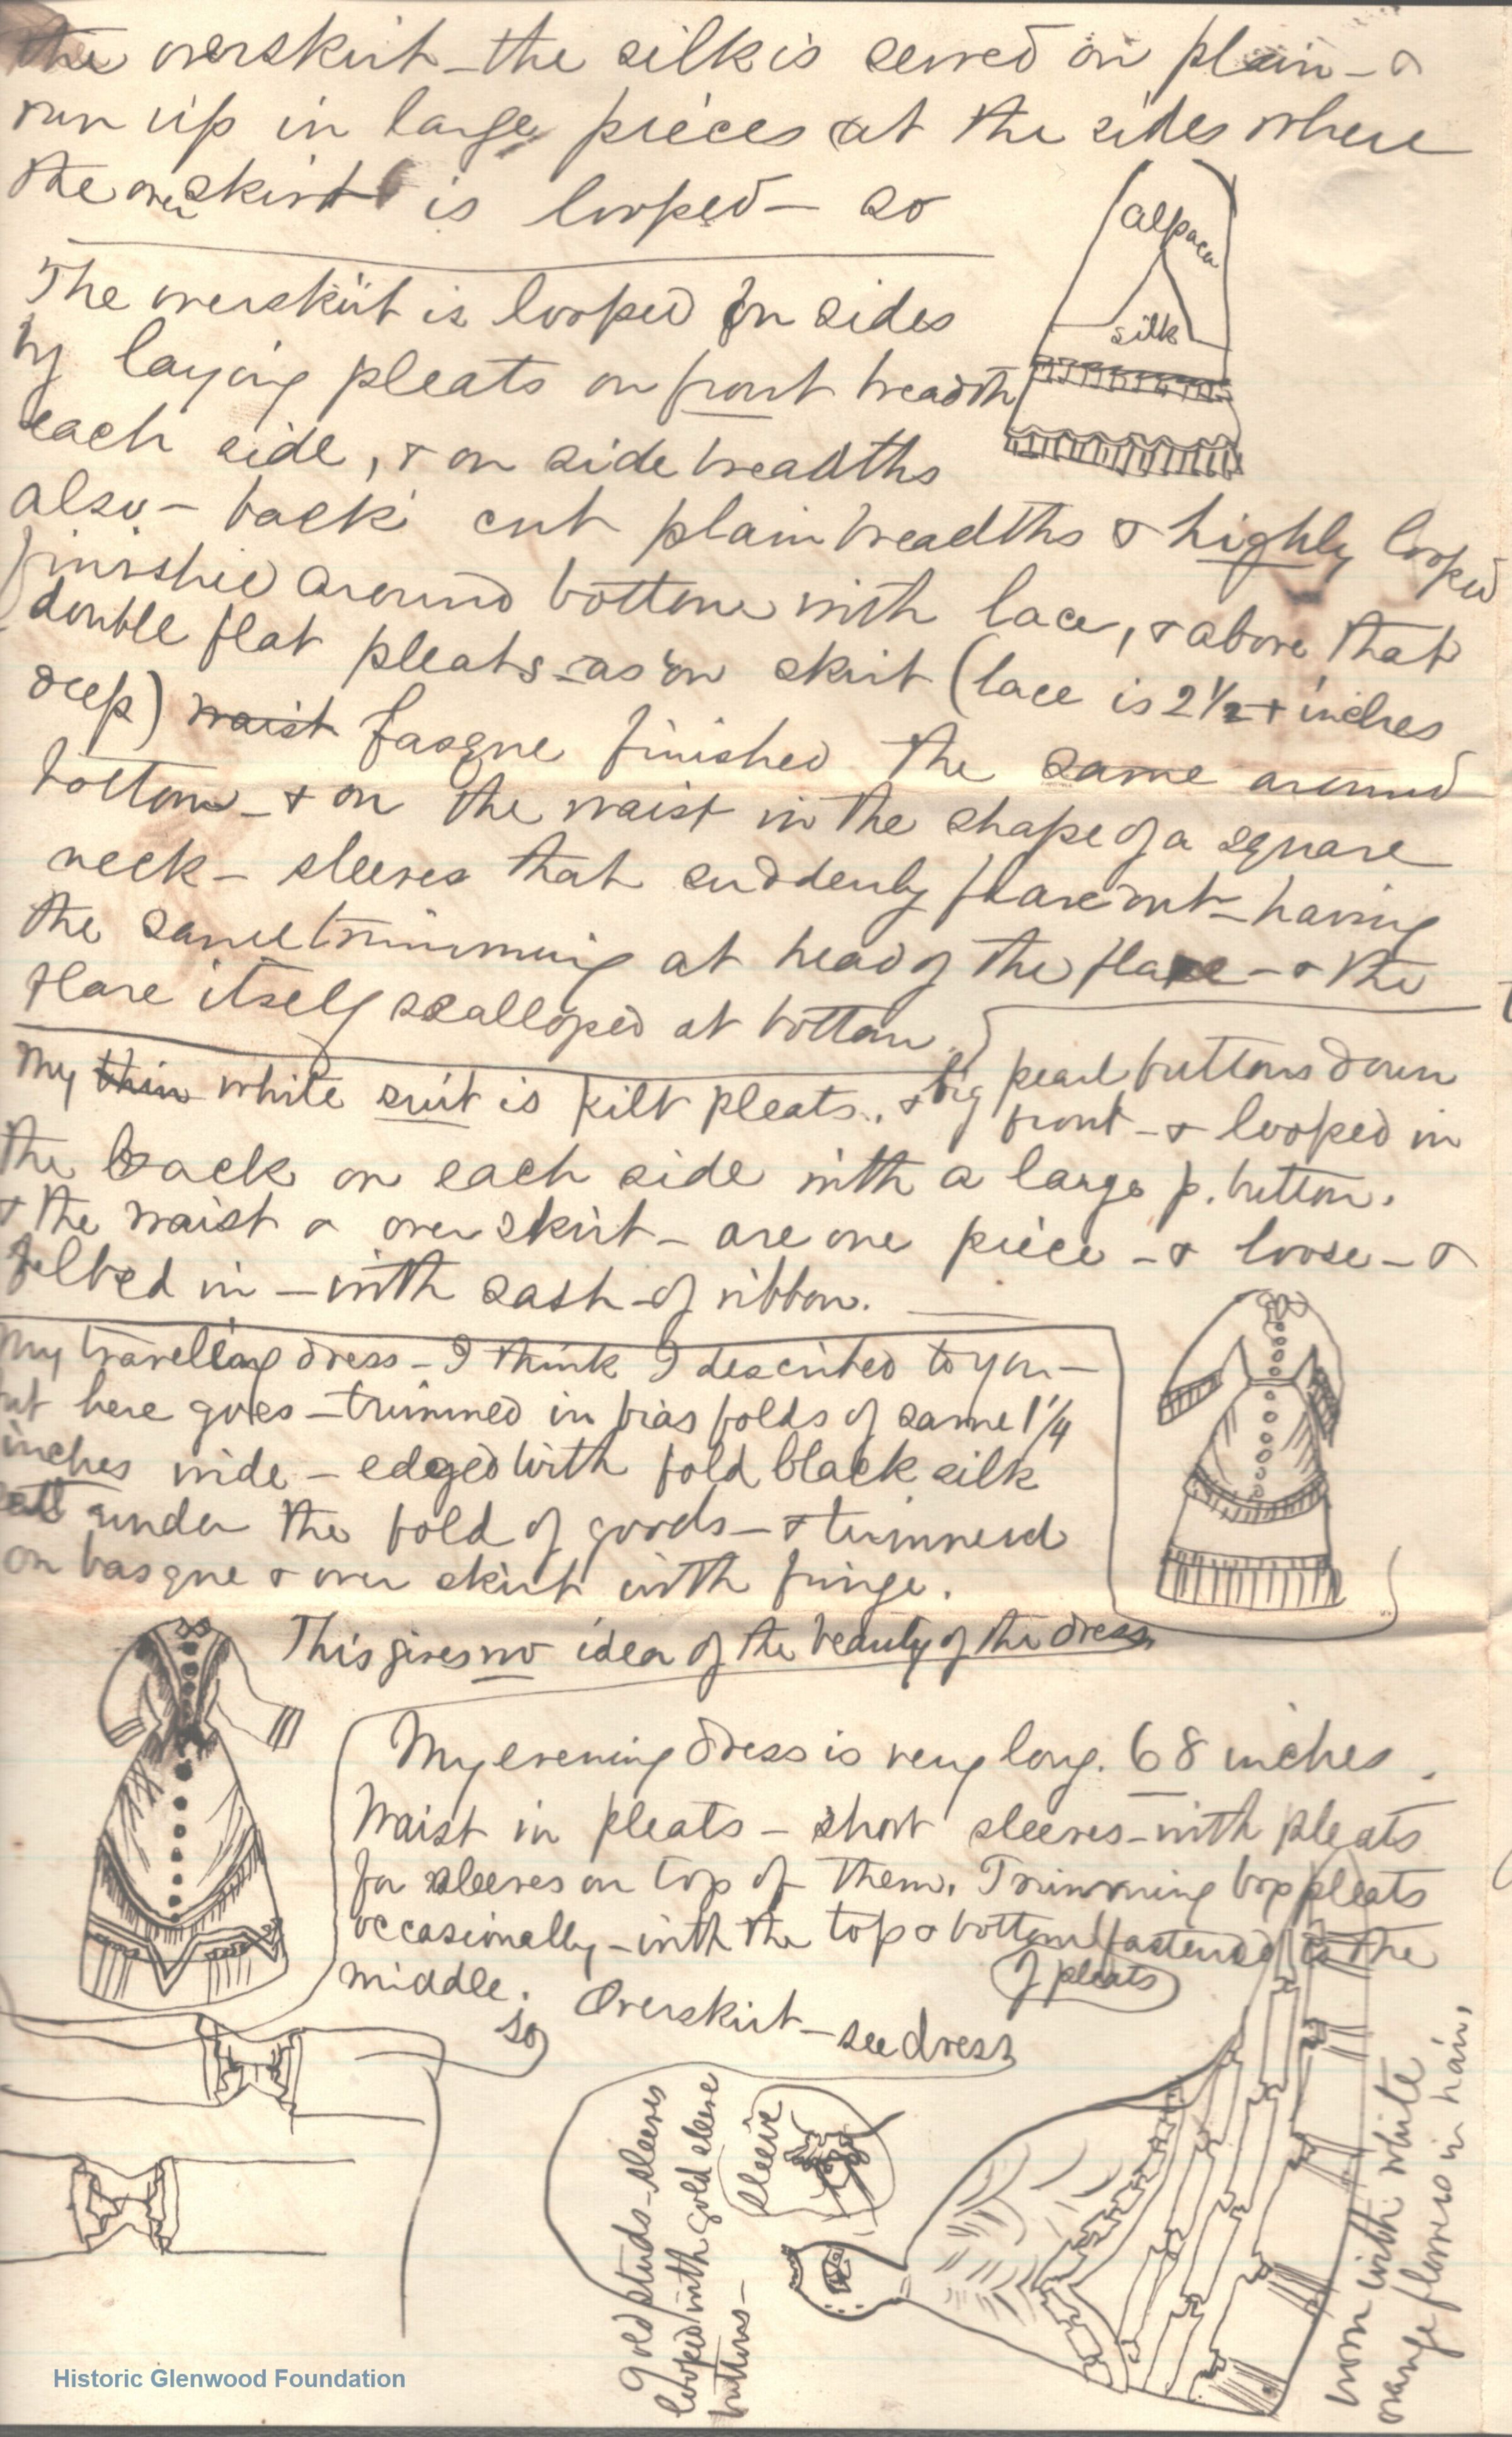 the overskirt - the silk is sewed on plain - &
run up in large pieces at the sides where
the over skirt is looped - so
alpaca
silk
The overskirt is looped on sides
by laying pleats on front breadth
each side, & on side breadths
also - back cut plain breadths & highly looped
finished around bottom with lace, & above that
double flat pleats - as on skirt (lace is 2 1/2 + inches
deep) waist basque finished the same around
bottom - & on the waist in the shape of a square
neck - sleeves that suddenly flare out - having
the same trimming at head of the flare - & the
flare itself scalloped at bottom.
My thin white suit is kilt pleats. & big pearl buttons down
front - & looped in
the back on each side with a large p. button.
& the waist & over skirt - are one piece - & loose - &
belted in - with sash of ribbon.
My traveling dress - I think I described to you -
but here goes - trimmed in bias folds of same 1 1/4
inches wide - edged with fold black silk
under the fold of goods - & trimmed
on basque & over skirt with fringe.
This gives no idea of the beauty of the dress
My evening dress is very long. 68 inches.
Waist in pleats - short sleeves - with pleats
for sleeves on top of them. Trimming box pleats
occasionally - with the top & bottom fastened to the
of pleats
middle.
so
Overskirt - see dress
Gold studs - sleeves
looped with gold sleeve
buttons -
sleeve
worn with white
orange flowers in hair,
Historic Glenwood Foundation